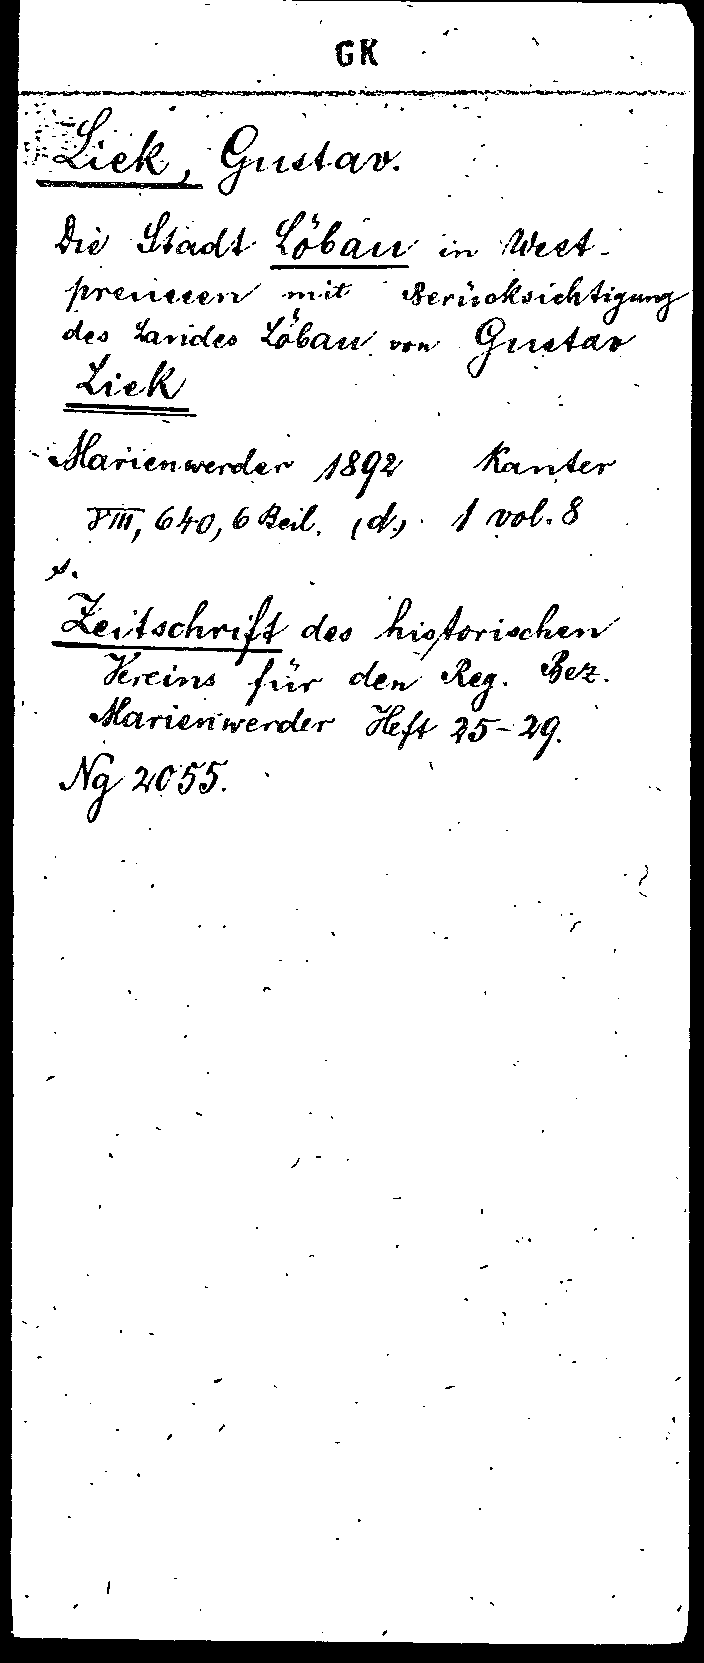 GK
Liek, Gustav.
Die Stadt Löbau in West-
preussen mit Berücksichtigung
des Landes Löbau von Gustav
Liek
Marienwerder 1892 Kanter
VIII, 640, 6 Beil. (d.) 1 vol. 8
s.
Zeitschrift des historischen
Vereins für den Reg. Bez.
Marienwerder Heft 25-29.
Ng 2055.